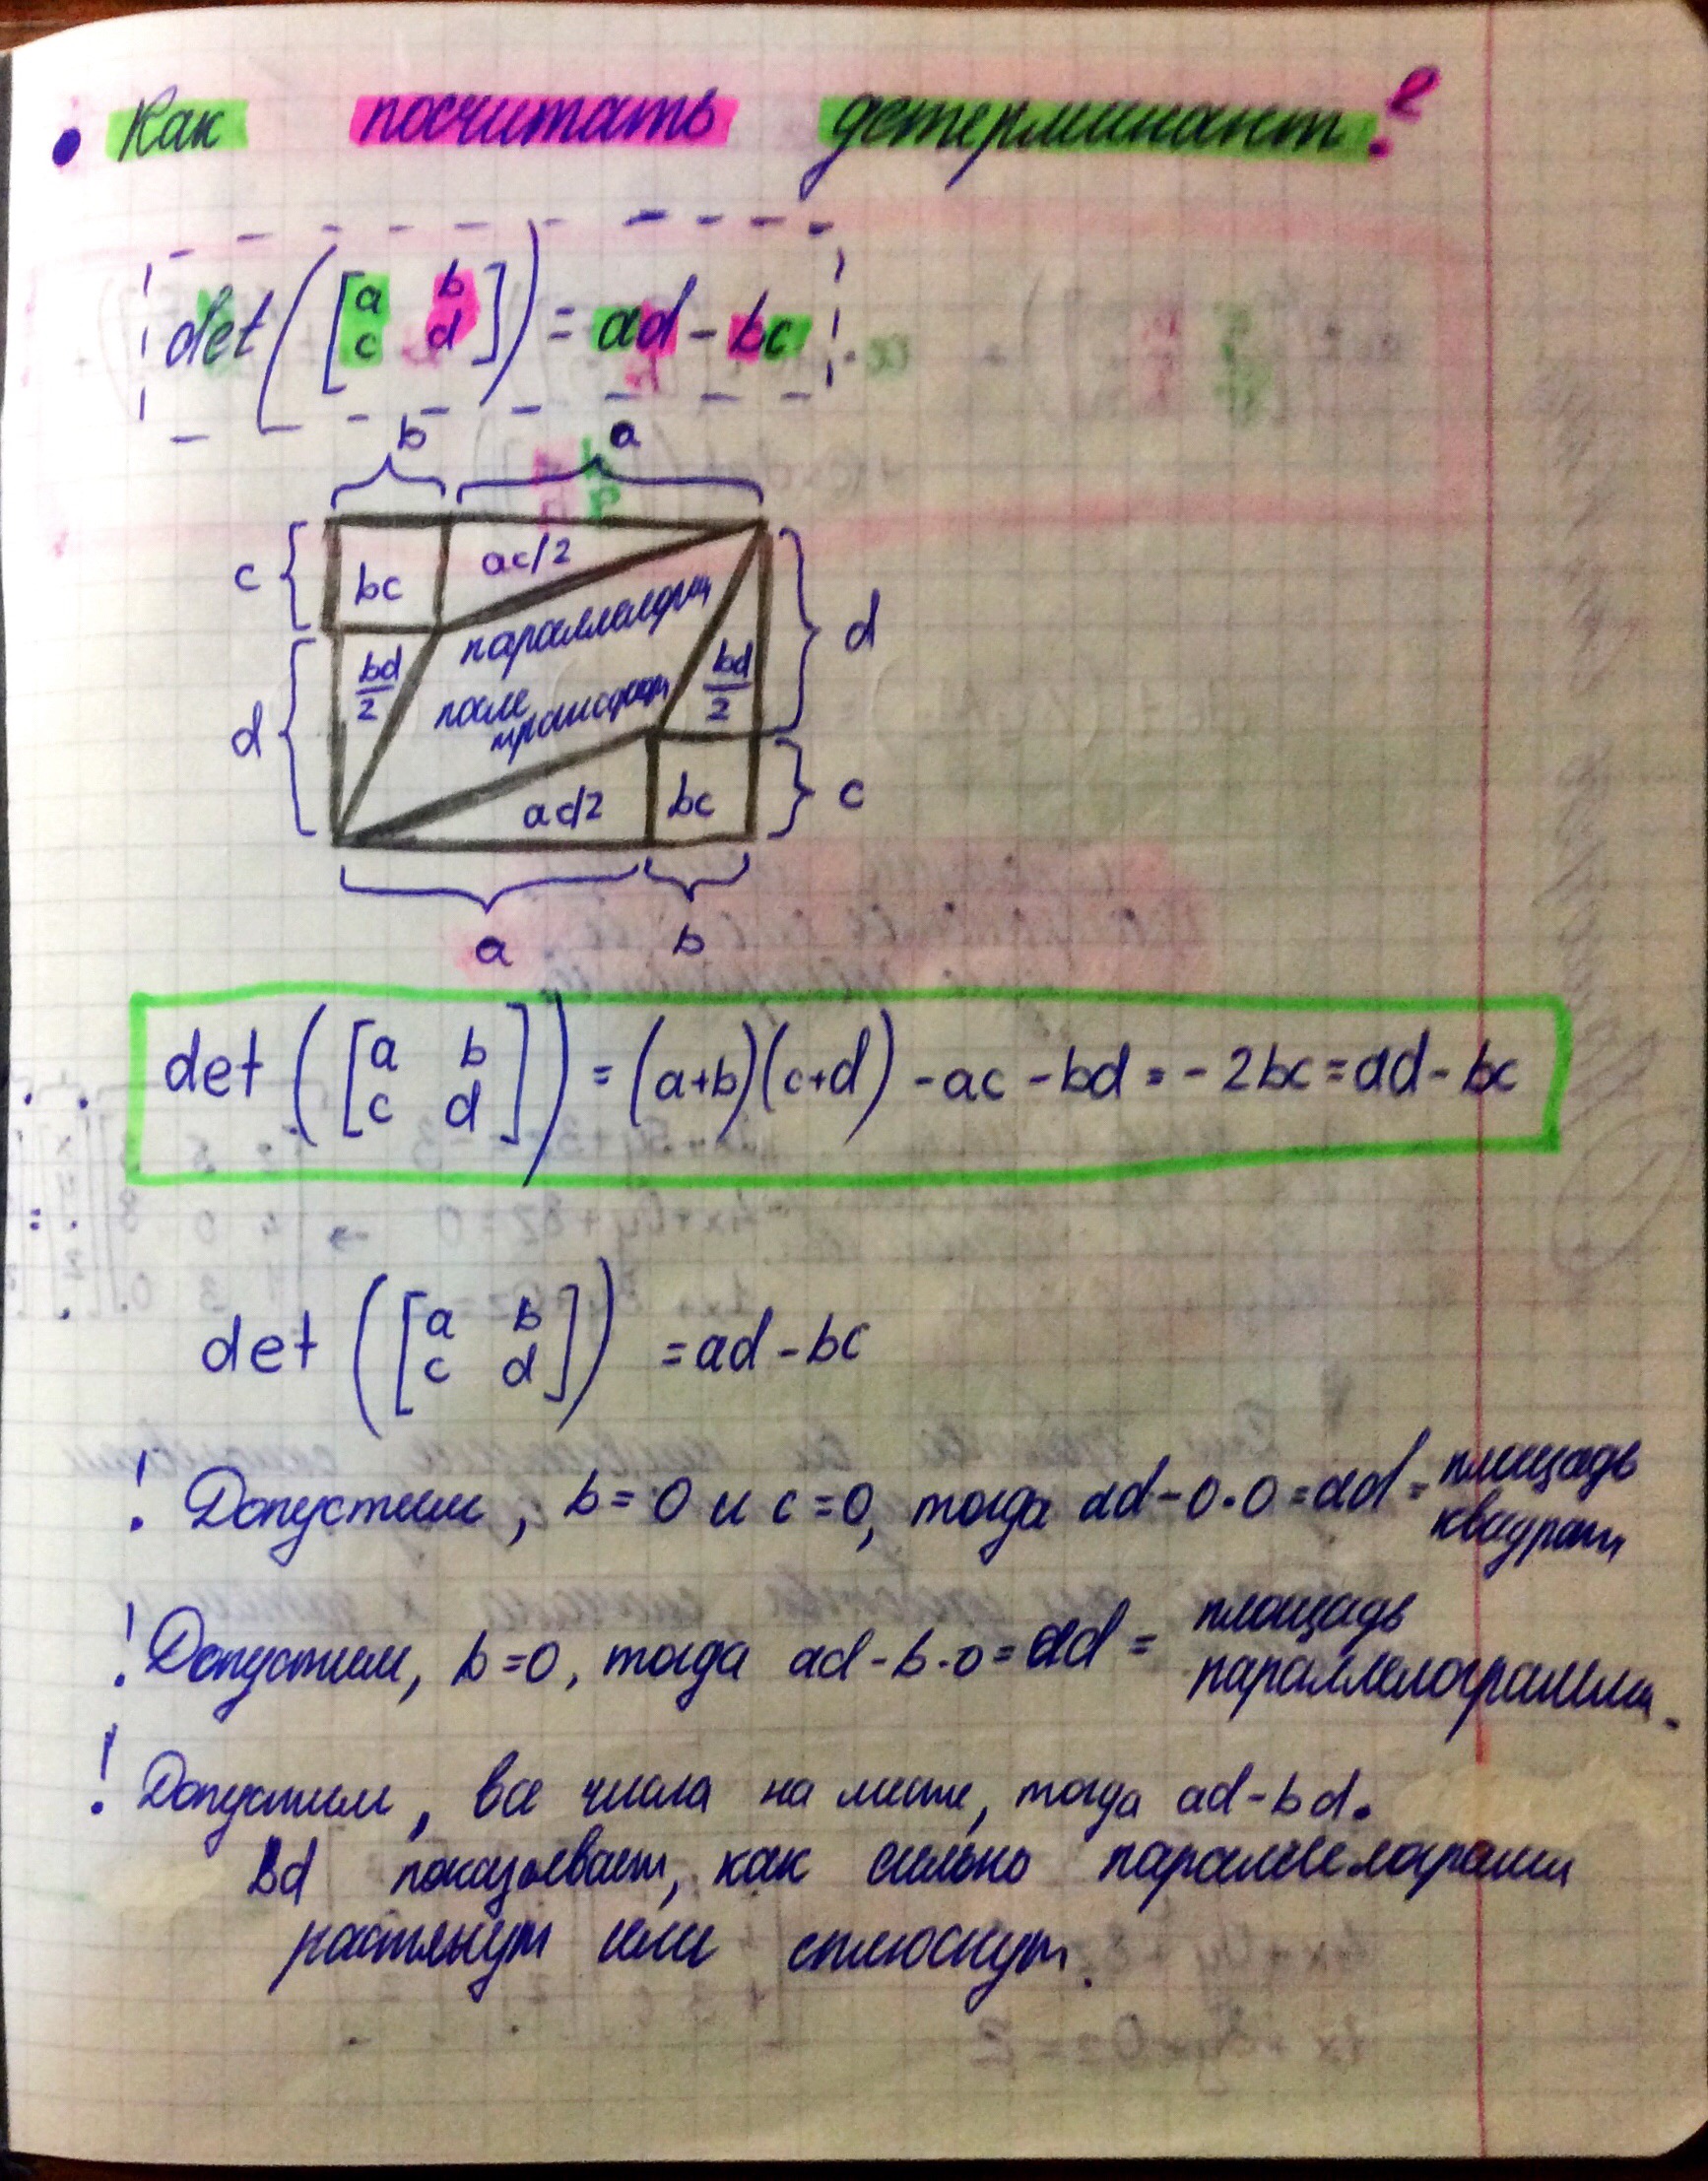 • Как посчитать детерминант?
det([a b
c d]) = ad - bc
b a
c bc ac/2
параллелогр
d bd/2 после трансформ bd/2 d
ac/2 bc c
a b
det([a b
c d]) = (a+b)(c+d) - ac - bd = - 2bc = ad - bc
det([a b
c d]) = ad - bc
! Допустим, b = 0 и c = 0, тогда ad - 0·0 = ad = площадь
квадрат
! Допустим, b = 0, тогда ad - b·0 = ad = площадь
параллелограмма.
! Допустим, все числа на месте, тогда ad - bd.
Bd показывает, как сильно параллелограмм
растянут или сплюснут.